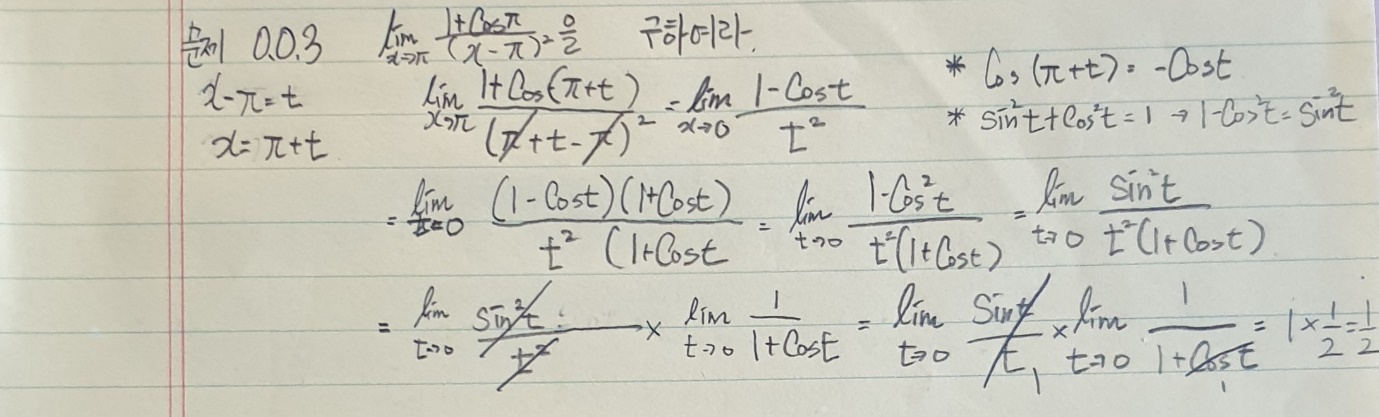 문제 0.0.3 lim x→π (1+Cosπ)/(x-π)² 을 구하여라.
x-π=t lim x→π (1+Cos(π+t))/(π+t-π)² = lim x→0 (1-Cost)/t² * Cos(π+t)=-Cost
x=π+t * sin²t+cos²t=1 → 1-Cos²t=Sin²t
= lim t=0 (1-Cost)(1+Cost)/t²(1+Cost = lim t→0 (1-Cos²t)/t²(1+Cost) = lim t→0 sin²t/t²(1+Cost)
= lim t→0 sin²t/t² × lim t→0 1/(1+Cost) = lim t→0 Sint/t 1 × lim t→0 1/(1+Cost) 1 = 1×1/2=1/2